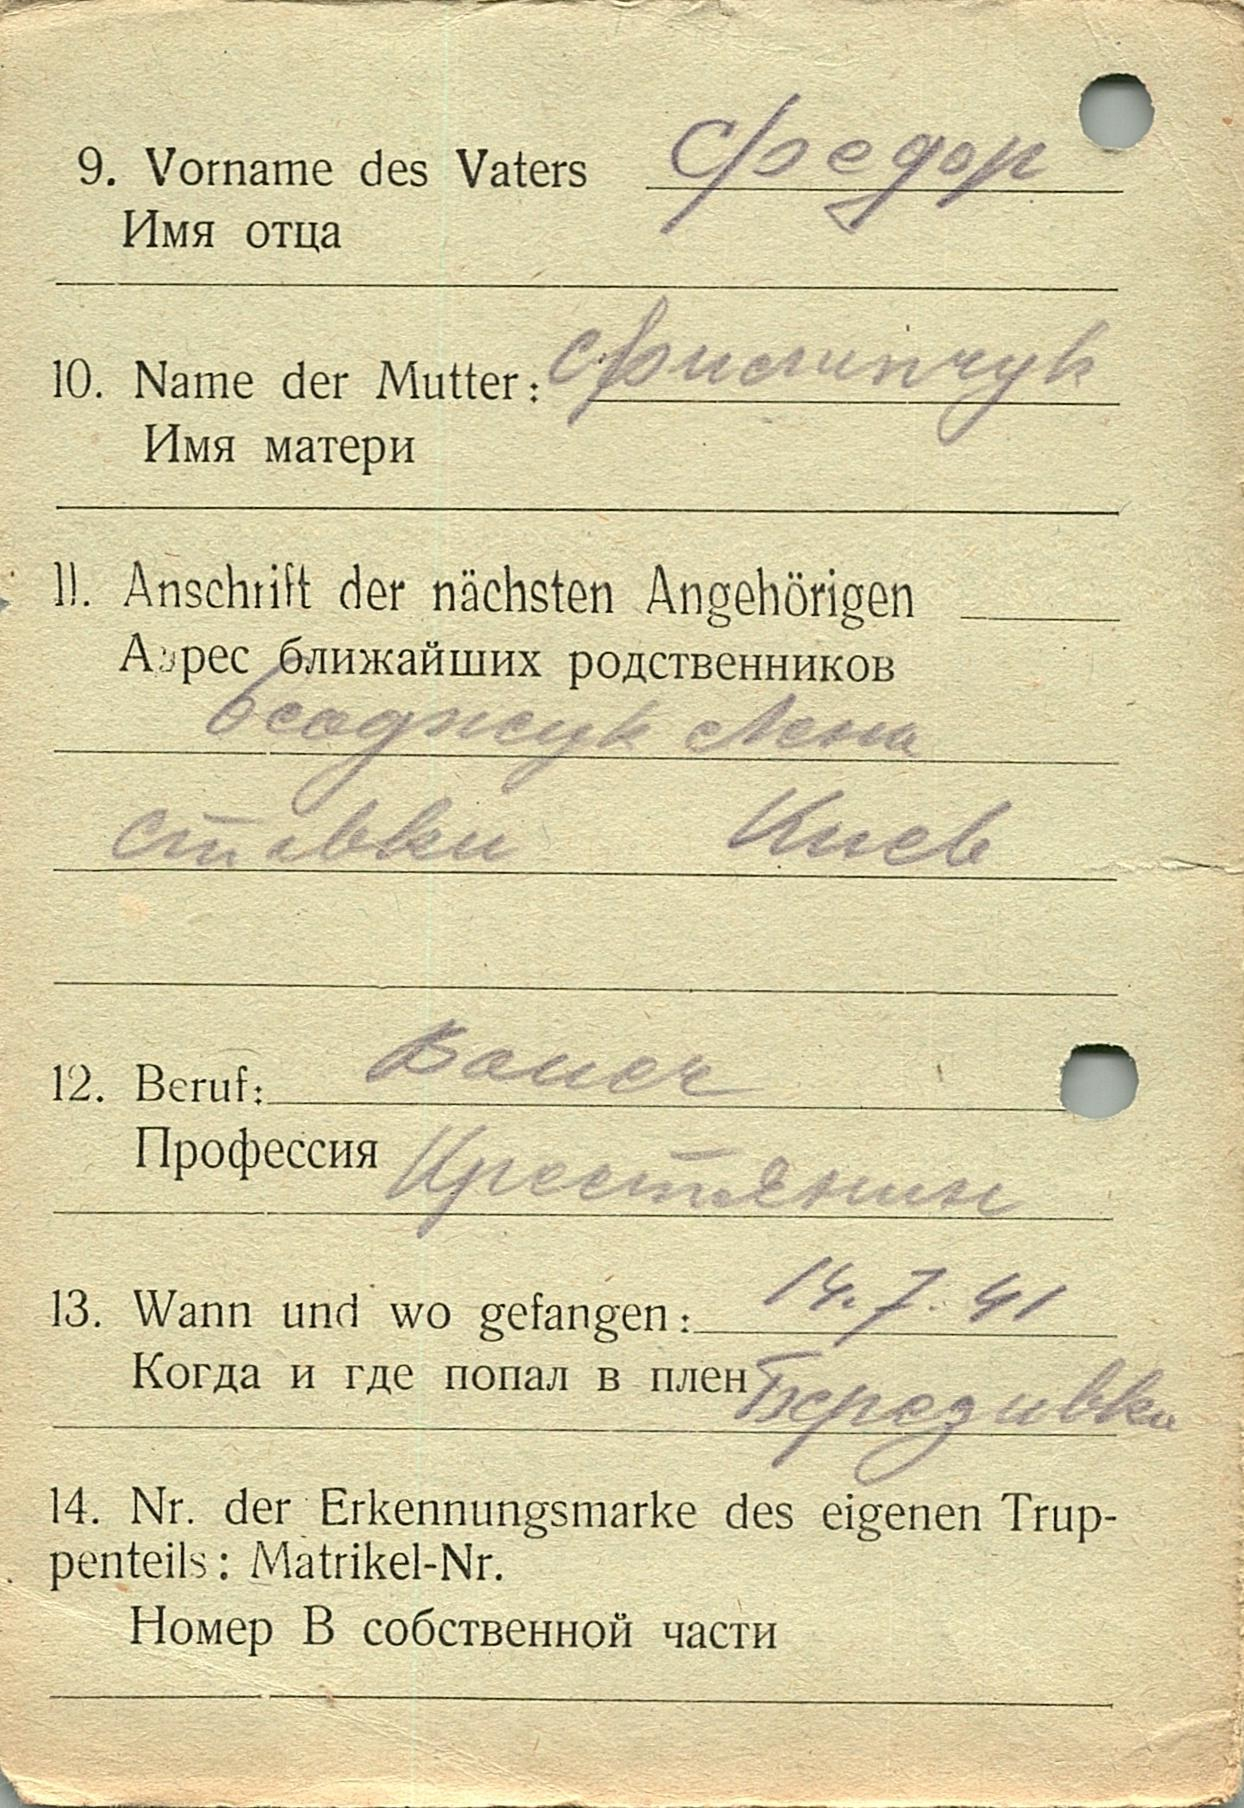 9. Vorname des Vaters Федор
Имя отца
10. Name der Mutter: Филипчук
Имя матери
11. Anschrift der nächsten Angehörigen
Адрес ближайших родственников
Лена
ставки Киев
12. Beruf: Вauer
Профессия Крестянин
13. Wann und wo gefangen: 14. 7. 41
Когда и где попал в плен
14. Nr. der Erkennungsmarke des eigenen Trup-
penteils: Matrikel-Nr.
Номер В собственной части